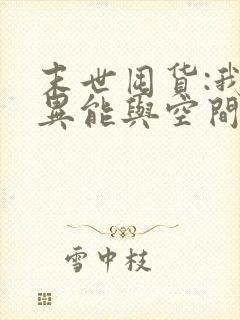 末世囤货:我
異能與空間
雪中枝